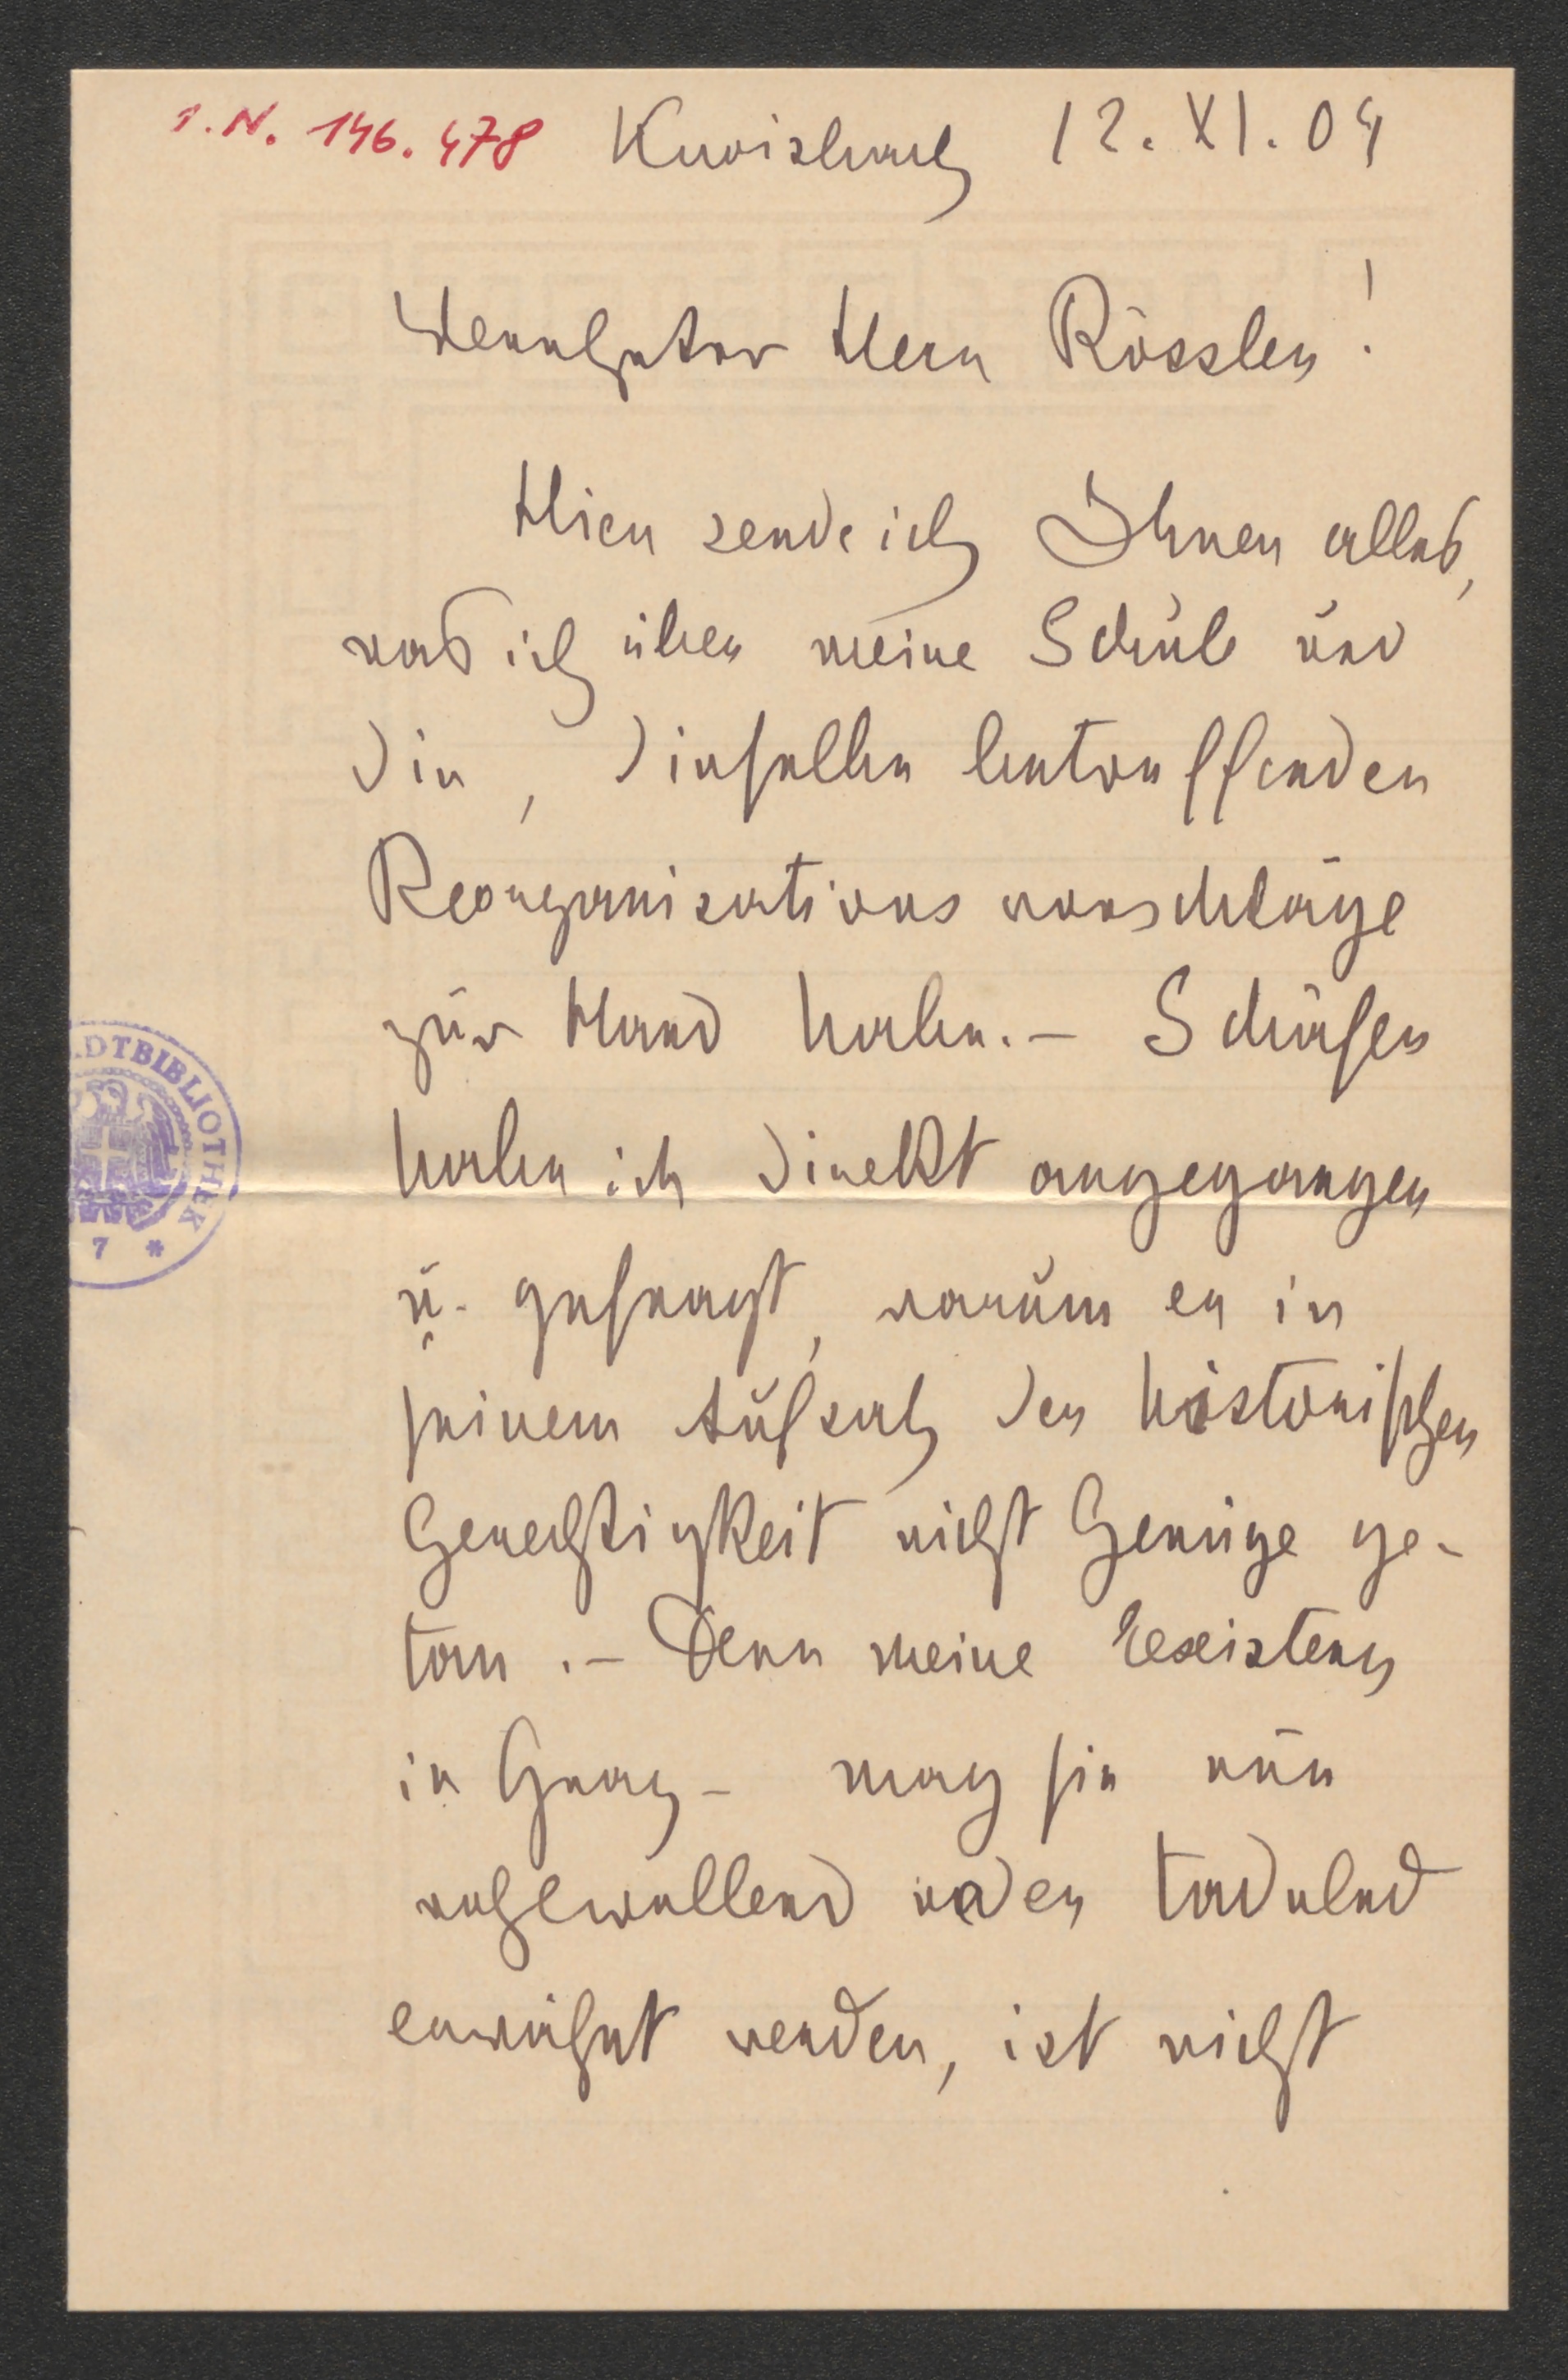 I. N. 146.478 Kroisbach 12. XI. 04
Verehrter Herr Rössler!
Hier sende ich Ihnen alles,
was ich über meine Schule und
die, dieselbe betreffenden
Reorganisations vorschläge
zur Hand habe. – Schäfer
habe ich direkt angegangen
u. gefragt, warum er in
seinem Aufsatz der historischen
Gerechtigkeit nicht Genüge ge-
tan. – Denn meine Existenz
in Graz – mag sie nun
wohlwollend oder tadelnd
erwähnt werden, ist nicht
DTBIBLIOTHEK
7 *